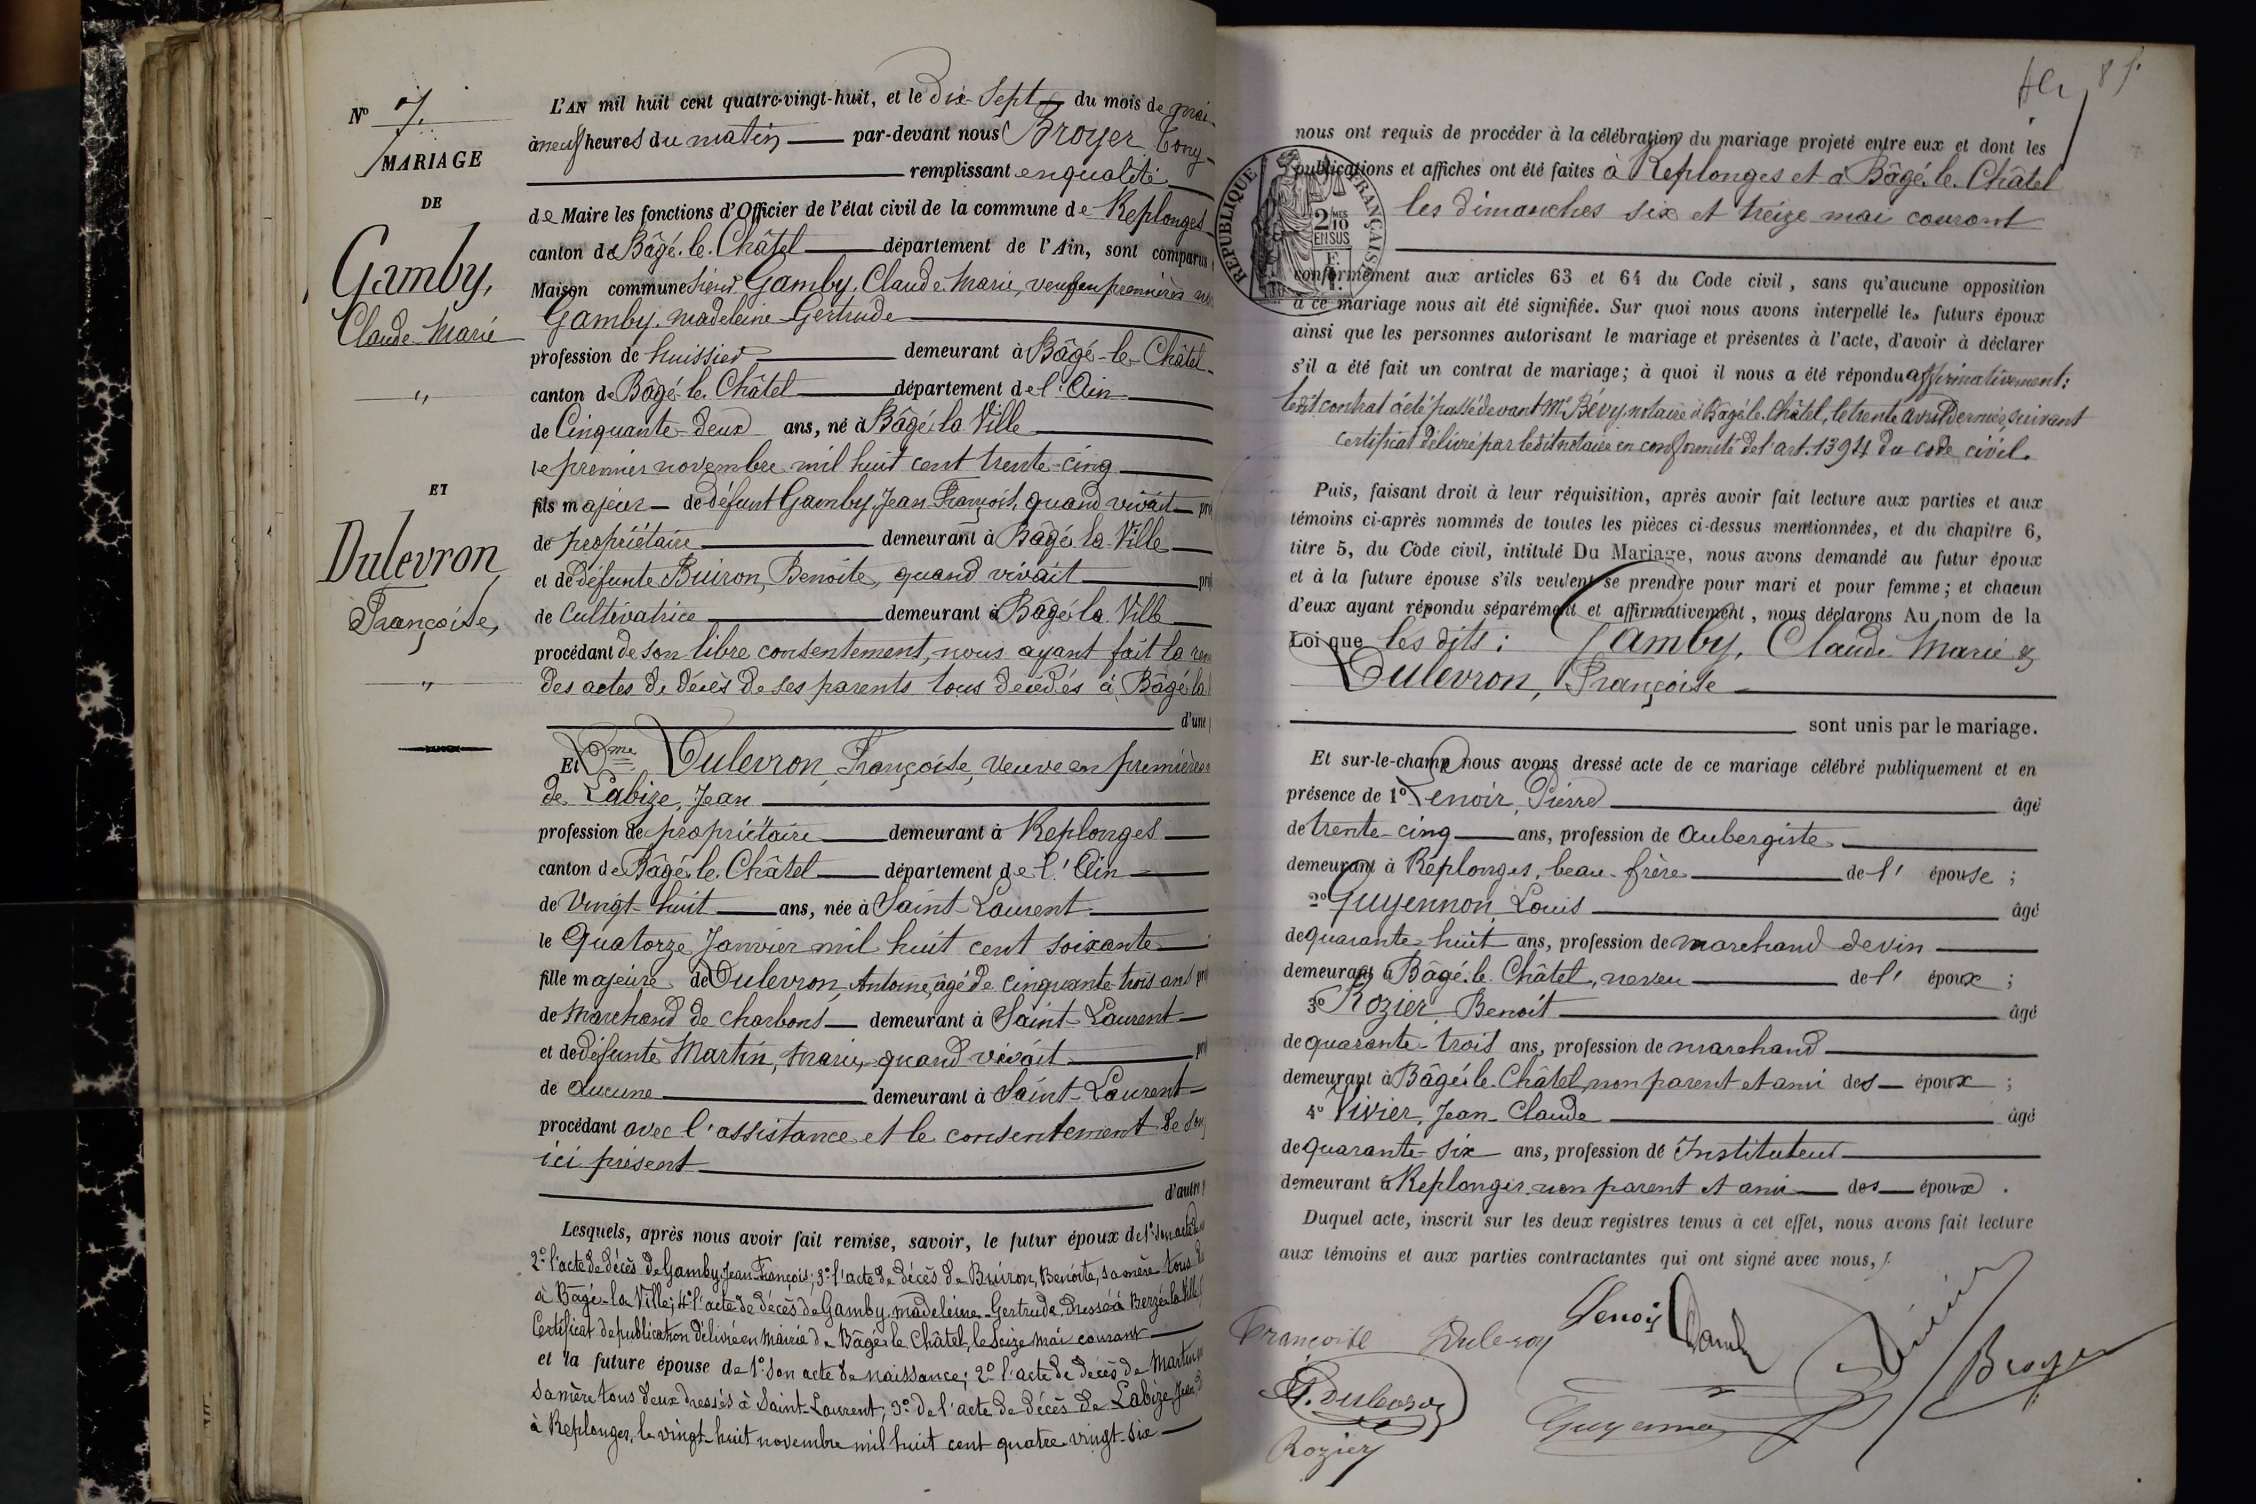 Nº 7.
MARIAGE
DE
Gamby,
Claude Marie
"
ET
Dulevron
Françoise,
"
L'AN mil huit cent quatre-vingt-huit, et le dix-sept du mois de mai
à neuf heures du matin par-devant nous Broyer Tony
remplissant en qualité
de Maire les fonctions d'Officier de l'état civil de la commune de Replonges
canton de Bâgé-le-Châtel département de l'Ain, sont comparus
Maison commune sieur Gamby, Claude Marie, veuf en premières
Gamby, Madeleine Gertrude
profession de huissier demeurant à Bâgé-le-Châtel
canton de Bâgé-le-Châtel département de l'Ain
de Cinquante-deux ans, né à Bâgé-la-Ville
le premier novembre mil huit cent trente-cinq
fils majeur de défunt Gamby, Jean François, quand vivait
de propriétaire demeurant à Bâgé-la-Ville
et de défunte Buiron, Benoite, quand vivait
de Cultivatrice demeurant à Bâgé-la-Ville
procédant de son libre consentement, nous ayant fait la
des actes de décès de ses parents tous décédés à Bâgé-la
d'une
Et Dme Dulevron, Françoise, veuve en premières
de Labize, Jean
profession de propriétaire demeurant à Replonges
canton de Bâgé-le-Châtel département de l'Ain
de Vingt-huit ans, née à Saint-Laurent
le Quatorze Janvier mil huit cent soixante
fille majeure de Dulevron, Antoine, âgé de cinquante-trois ans
de Marchand de charbons demeurant à Saint-Laurent
et de défunte Martin, Marie, quand vivait
de aucune demeurant à Saint-Laurent
procédant avec l'assistance et le consentement de son
ici présent
d'autre
Lesquels, après nous avoir fait remise, savoir, le futur époux de 1º son acte
2º l'acte de décès de Gamby, Jean François; 3º l'acte de décès de Buiron, Benoite, sa mère tous
à Bâgé-la-Ville; 4º l'acte de décès de Gamby, Madeleine Gertrude, dressé à Berzé-la-Ville
Certificat de publication délivré en mairie de Bâgé-le-Châtel, le seize mai courant
et la future épouse de 1º son acte de naissance; 2º l'acte de décès de Martin
sa mère tous deux dressés à Saint-Laurent; 3º de l'acte de décès de Labize Jean
à Replonges, le vingt-huit novembre mil huit cent quatre vingt-six
87
nous ont requis de procéder à la célébration du mariage projeté entre eux et dont les
publications et affiches ont été faites à Replonges et à Bâgé-le-Châtel
les dimanches six et treize mai courant
RÉPUBLIQUE FRANÇAISE
2/10MES
EN SUS
conformément aux articles 63 et 64 du Code civil, sans qu'aucune opposition
à ce mariage nous ait été signifiée. Sur quoi nous avons interpellé les futurs époux
ainsi que les personnes autorisant le mariage et présentes à l'acte, d'avoir à déclarer
s'il a été fait un contrat de mariage; à quoi il nous a été répondu affirmativement:
ledit contrat a été passé devant Me Bévy, notaire à Bâgé-le-Châtel, le trente avril dernier, suivant
certificat délivré par ledit notaire en conformité de l'art. 1394 du code civil.
Puis, faisant droit à leur réquisition, après avoir fait lecture aux parties et aux
témoins ci-après nommés de toutes les pièces ci-dessus mentionnées, et du chapitre 6,
titre 5, du Code civil, intitulé Du Mariage, nous avons demandé au futur époux
et à la future épouse s'ils veulent se prendre pour mari et pour femme; et chacun
d'eux ayant répondu séparément et affirmativement, nous déclarons Au nom de la
Loi que les dits: Gamby, Claude Marie &
Dulevron, Françoise
sont unis par le mariage.
Et sur-le-champ nous avons dressé acte de ce mariage célébré publiquement et en
présence de 1º Lenoir, Pierre âgé
de trente-cinq ans, profession de aubergiste
demeurant à Replonges, beau-frère de l' épouse;
2º Guyennon, Louis âgé
de quarante-huit ans, profession de marchand de vin
demeurant à Bâgé-le-Châtel, neveu de l' époux;
3º Rozier, Benoît âgé
de quarante-trois ans, profession de marchand
demeurant à Bâgé-le-Châtel, non parent et ami des époux;
4º Vivier, Jean-Claude âgé
de quarante-six ans, profession de Instituteur
demeurant à Replonges, non parent et ami des époux.
Duquel acte, inscrit sur les deux registres tenus à cet effet, nous avons fait lecture
aux témoins et aux parties contractantes qui ont signé avec nous,
Lenoir
Françoise Dulevron
Gamby
Vivier
Broyer
Guyennon
Rozier